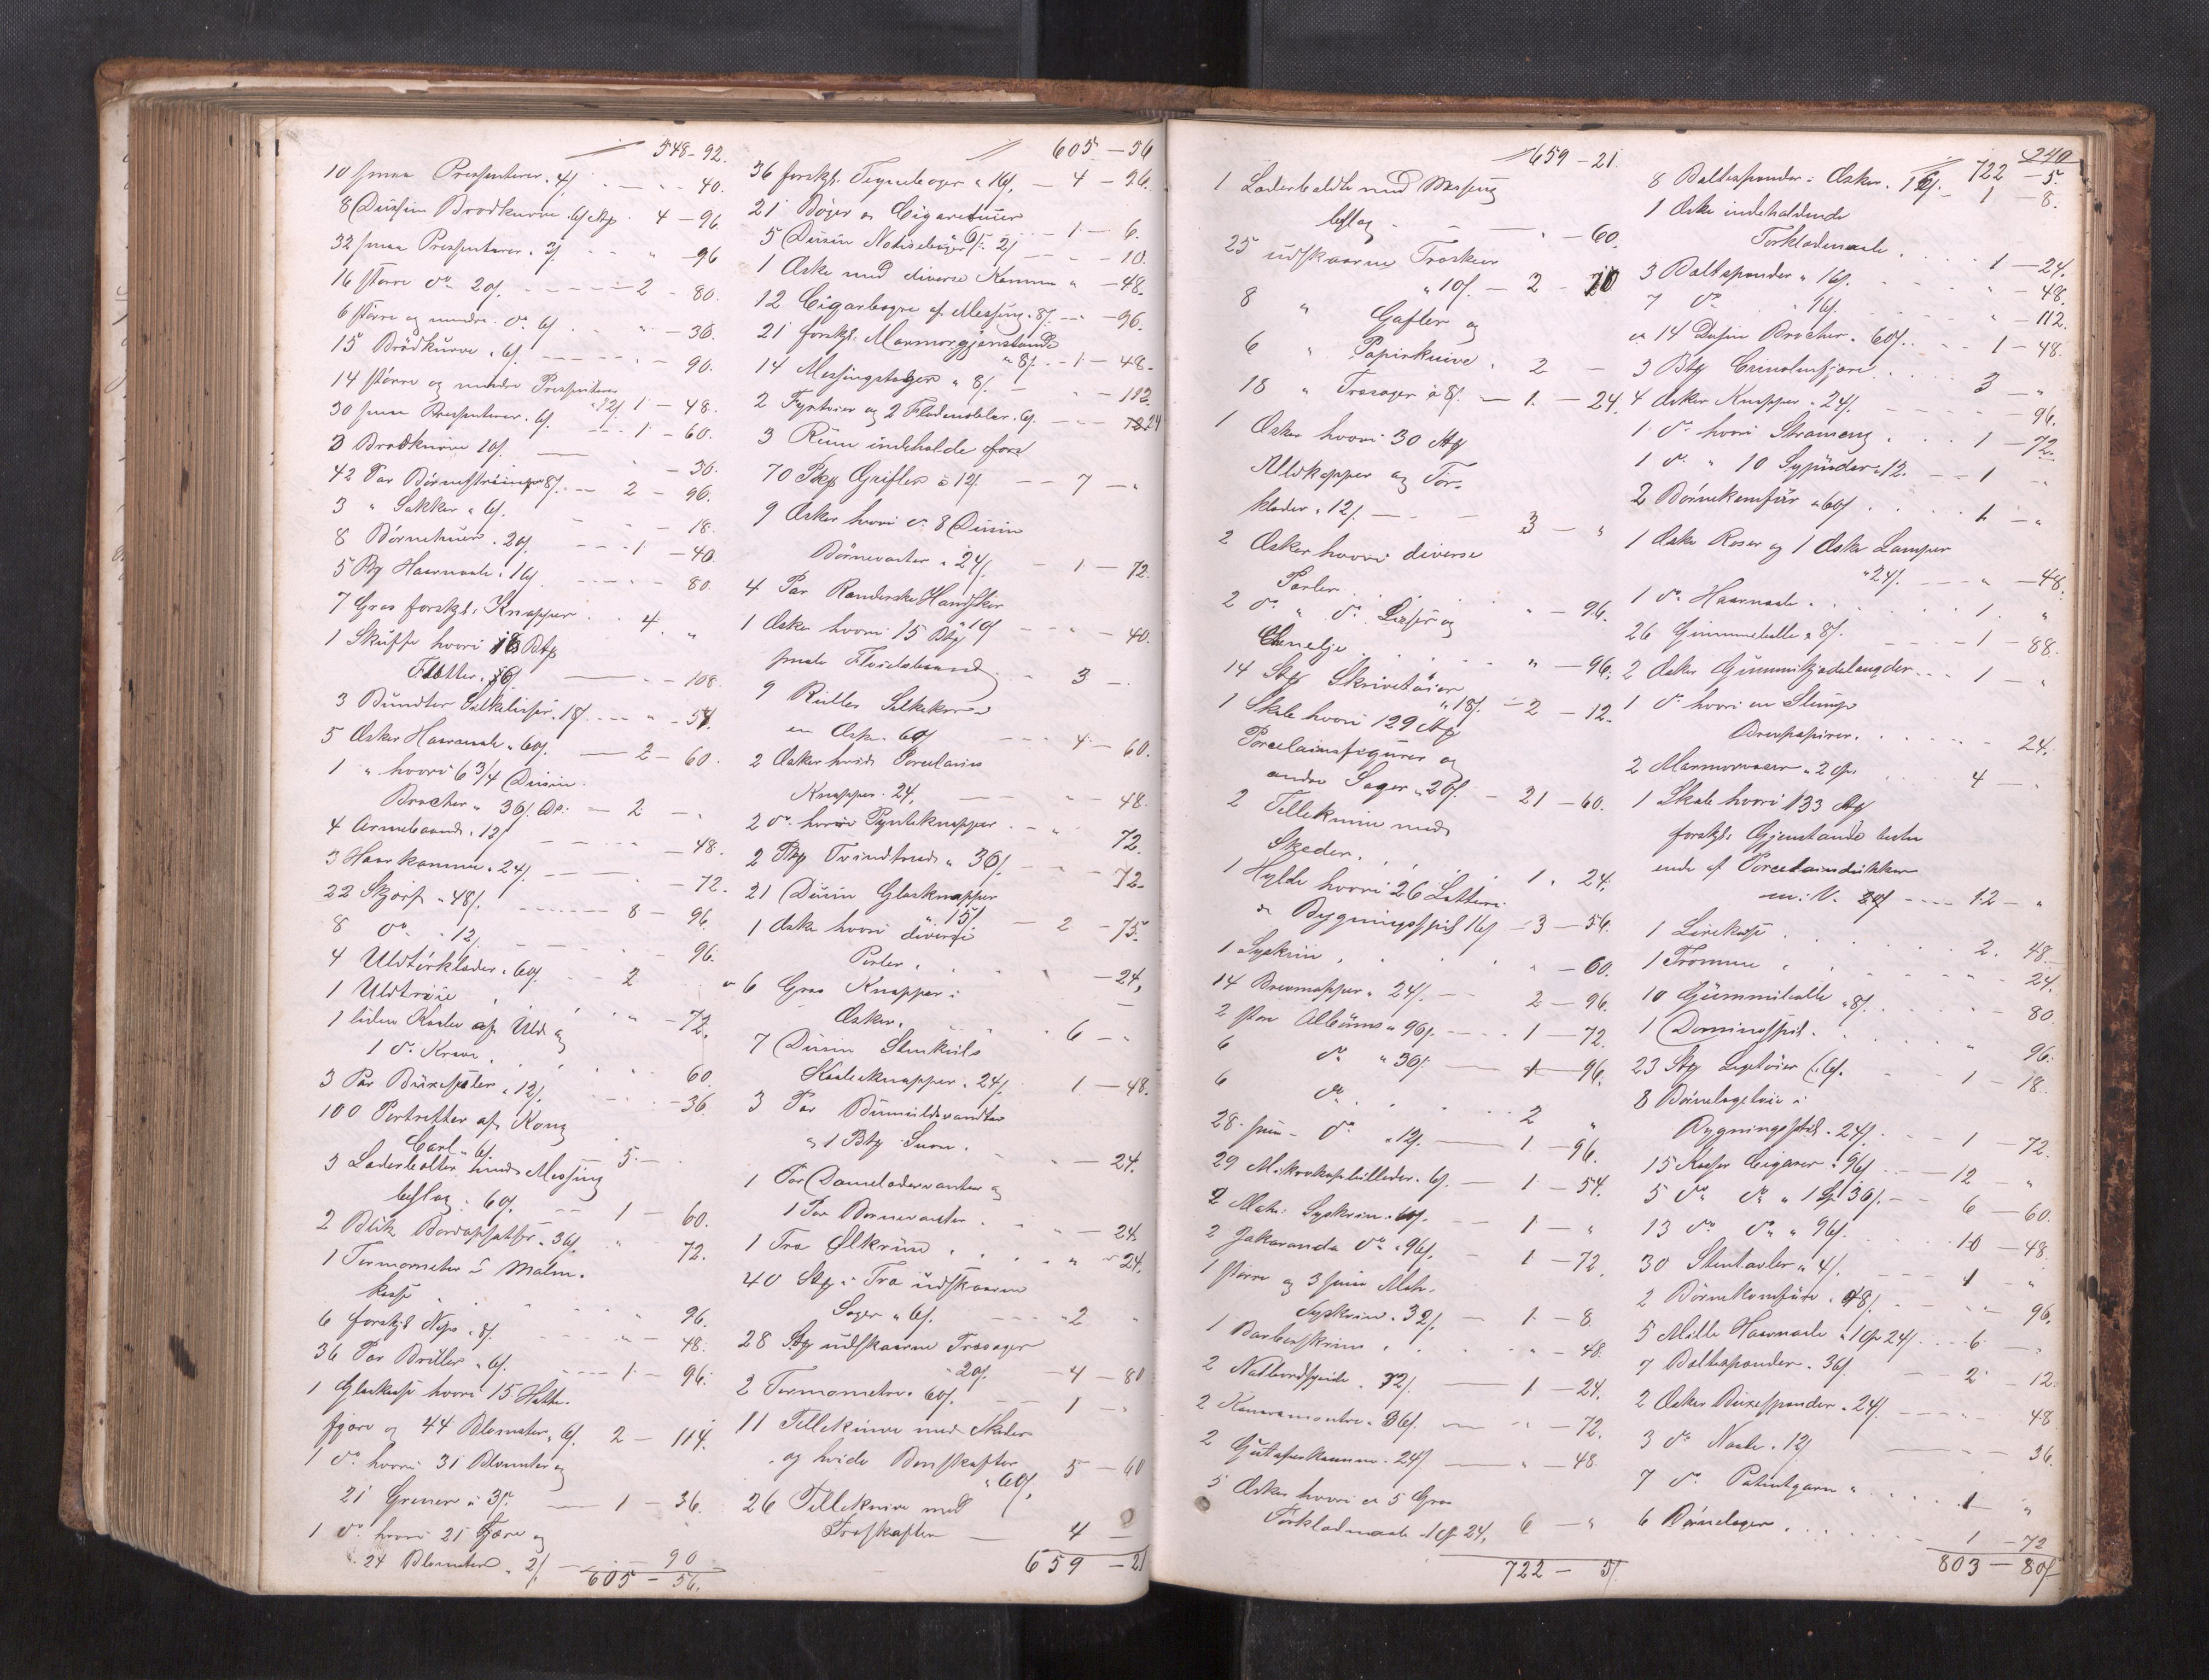 548-92.
10 smaa Presenterer. 4/. - 40.
8 Dusin Brodkurve. 6/ Stp 4 - 96.
32 smaa Presenterer. 3/. " - 96
16 større do 20/. - 2 - 80.
6 større og mindre do 6/. " - 36.
15 Brödkurve. 6/. - 90.
14 større og mindre Presenterer
" 12/ 1 - 48.
30 smaa Presenterer. 6/. - 1 - 60.
3 Brodknive 10/. - 30.
42 Par Børnestrømper 8/. - 2 - 96.
3 " Sokker " 6/. - 18.
8 Børnehuer. 20/. - 1 - 40.
5 Btg Haarnaale. 16/ - 80.
7 Gros forskjl: Knapper . . 4. "
1 Skuffe hvori 18 Btg
Fletter. 6/ - 108.
3 Bundter Silkelisser. 18/. " - 54.
5 Æsker Haarnaale " 60/. - 2 - 60.
1 " hvori 6 3/4 Dusin
Brocher " 36/. Ds: - 2 - "
4 Armebaand. 12/ - 48.
3 Haarkamme. 24/. - 72.
22 Skjorf " 48/. - 8 - 96.
8 do " 12/. - 96.
4 Uldtörklæder. 60/. 2
1 Uldtrøie " - 72.
1 liden Kaabe af Uld og
1 do Krave. 60.
3 Par Buxeseler. 12/. - 36.
100 Portretter af Kong
Carl " 6/. 5 -
3 Læderbelter med Messing
beslag. 60/. 1 - 60.
2 Blik Bordopsatser. 36/. " 72.
1 Termometer i Malm.
kasse " 96.
6 forskjl Nips. 8/. " - 48.
36 Par Briller. 6/. - 1 - 96.
1 Glaskasse hvori 15 Hatte.
fjære og 44 Blomster. 6/. 2 - 114.
1 do hvori 31 Blomster og
21 Grener à 3/. - 1 - 36.
1 do hvori 21 Fjære og
24 Blomster. 2/. - 90
605 - 56.
605 - 56
36 forskjl. Tegnebøger " 16/. - 4 - 96.
21 Bøger og Cigaretuier
" 6/. - 1 - 6.
5 Dusin Notisebøger 2/ - 10.
1 Æske med diverse Kamme " - 48.
12 Cigarbøgre af Messing. 8/. - 96.
21 forskjl. Marmorgjenstande
" 8/. - 1 - 48.
14 Messingstager " 8/. - 112.
2 Fyrtøier og 2 Flødemokler. 6/. 24
3 Rum indeholdende
70 Pkg Grifler à 12/. - 7 - "
9 Æsker hvori ca 8 Dusin
Börnevanter " 24/. - 1 - 72.
4 Par Randerske Handsker
" 10/ " - 40.
1 Æske hvori 15 Btg
smale Fløielsbaand. 3 -
9 Ruller Silkekor
en Æske. 60/ - 4 - 60.
2 Æsker hvide Porcelains
Knapper. 24/. - 48.
2 do hvori Pynteknapper. " 72.
2 Pkg Tvindtraad " 36/. - 72.
21 Dusin Glasknapper
" 15/ - 2 - 75.
1 Æske hvori diverse
Perler. - 24,
ca 6 Gros Knapper i
Æsker. 6 - "
7 Dusin Stenkuls
Kaabeknapper. 24/. 1 - 48.
3 Par Bomuldsvanter
og 1 Btg Snore. - 24.
1 Par Damelædervanter og
1 Par Børnevanter. - 24.
1 Træ Ølkruus " - 24.
40 Stp i Træ udskaarne
Sager " 6/. - 2 "
28 Stp udskaarne Træsager
" 20/. - 4 - 80
2 Termometre. 60/. - 1 - "
11 Telleknive med Skeder
og hvide Benskafter
" 60/. 5 - 60
26 Telleknive med
Træskafter - 4 -
659 - 21
240
659 - 21.
1 Læderbelte med Messing
beslag - - 60.
25 udskaarne Træskeer
" 10/. - 2 - 70
8 " Gafler og
6 " Papirknive. 2 -
18 " Træsager à 8/. - 1. - 24.
1 Æsker hvori 30 Stp
Uldkapper og Tør-
klæder. 12/. - 3 - "
2 Æsker hvori diverse
Perler. " - 96.
2 do " do Lisser og
Chenelje " - 96.
14 Stp Skrivetøier
" 18/. - 2 - 12.
1 Skab hvori 129 Stp
Porcelainsfigurer og
andre Sager " 26/. - 21 - 60.
2 Telleknive med
Skeder. 1. 24.
1 Hylde hvori 26 Lotteri
og Bygningsspil 16/ - 3 - 56.
1 Syskrin " - 60.
14 Brevmapper " 24/. - 2 - 96.
2 store Albüms " 96/. - 1 - 72.
6 do " 36/. - 1 - 96.
6 do 2 "
28 smaa do " 12/. - 1 - 96.
29 Mikroskopbilleder. 6/. - 1 - 54.
2 Mah: Syskrin. 60/. - 1 - "
2 Jakaranda do " 96/. - 1 - 72.
1 større og 3 smaa Mah.
Syskrin. 32/. - 1 - 8
1 Barberskrin " - 48.
2 Natbordspeile. 72/. - 1 - 24.
2 Kammemontre. 36/. - " - 72.
2 Gutaperkamme. 24/. - " - 48.
5 Æsker hvori ca 5 Gros
Forklædnaale. 1 Sp 24. 6 - "
722 - 5/.
722 - 5.
8 Beltespænder i Æsker. 16/. - 1 - 8.
1 Æske indeholdende
Forklædnaale. 1 - 24.
3 Beltespænder " 16/. " - 48.
7 do " 16/. " - 112.
ca 14 Dusin Brocher. 60/. - 1 - 48.
3 Btg Crinolinfjære 3 - "
4 Æsker Knapper. 24/. - 96.
1 do hvori Stramenz. 1 - 72.
1 do " 10 Sypüder. 12. - 1 - "
2 Börnekomfür " 60/. 1 - "
1 Æske Roser og 1 Æske Lamper
" 24/. " - 48.
1 do Haarnaale. 1. "
26 Gummiballe " 8/. - 1 - 88.
2 Æsker Gummikjedelængder - 1 - "
1 do hvori en Slump
Brevpapirer. 24.
2 Marmorvaser " 2 Sp. 4 - "
1 Skab hvori 133 Stp
forskjl. Gjenstande bestaa
ende af Porcelainsdukker
m: V. - 12 - "
1 Lirekasse 2. 48.
1 Tromme " 24.
10 Gümmiballe " 8/. 80
1 Dominospil. " 96.
23 Stp Legetøier 6/. 1 - 18.
8 Børnelegetøie i
Bygningsspil. 24/. - 1 - 72.
15 Kasser Cigarer " 96/ - 12 - "
5 do do " 1 Sp 36/. - 6 - 60.
13 do do " 96/. 10 - 48.
30 Stentavler " 4/. 1 - "
2 Børnekomfüre. 48/. " 96.
5 Mille Haarnaale " 1 Sp 24/. - 6 - "
7 Beltespænder. 36/. - 2 - 12.
2 Æsker Buxespænder. 24/. 48
3 do Naale. 12/. 36.
7 do Patentgarn " 1 - "
6 Børnebøger. 1 - 72
803 - 80/